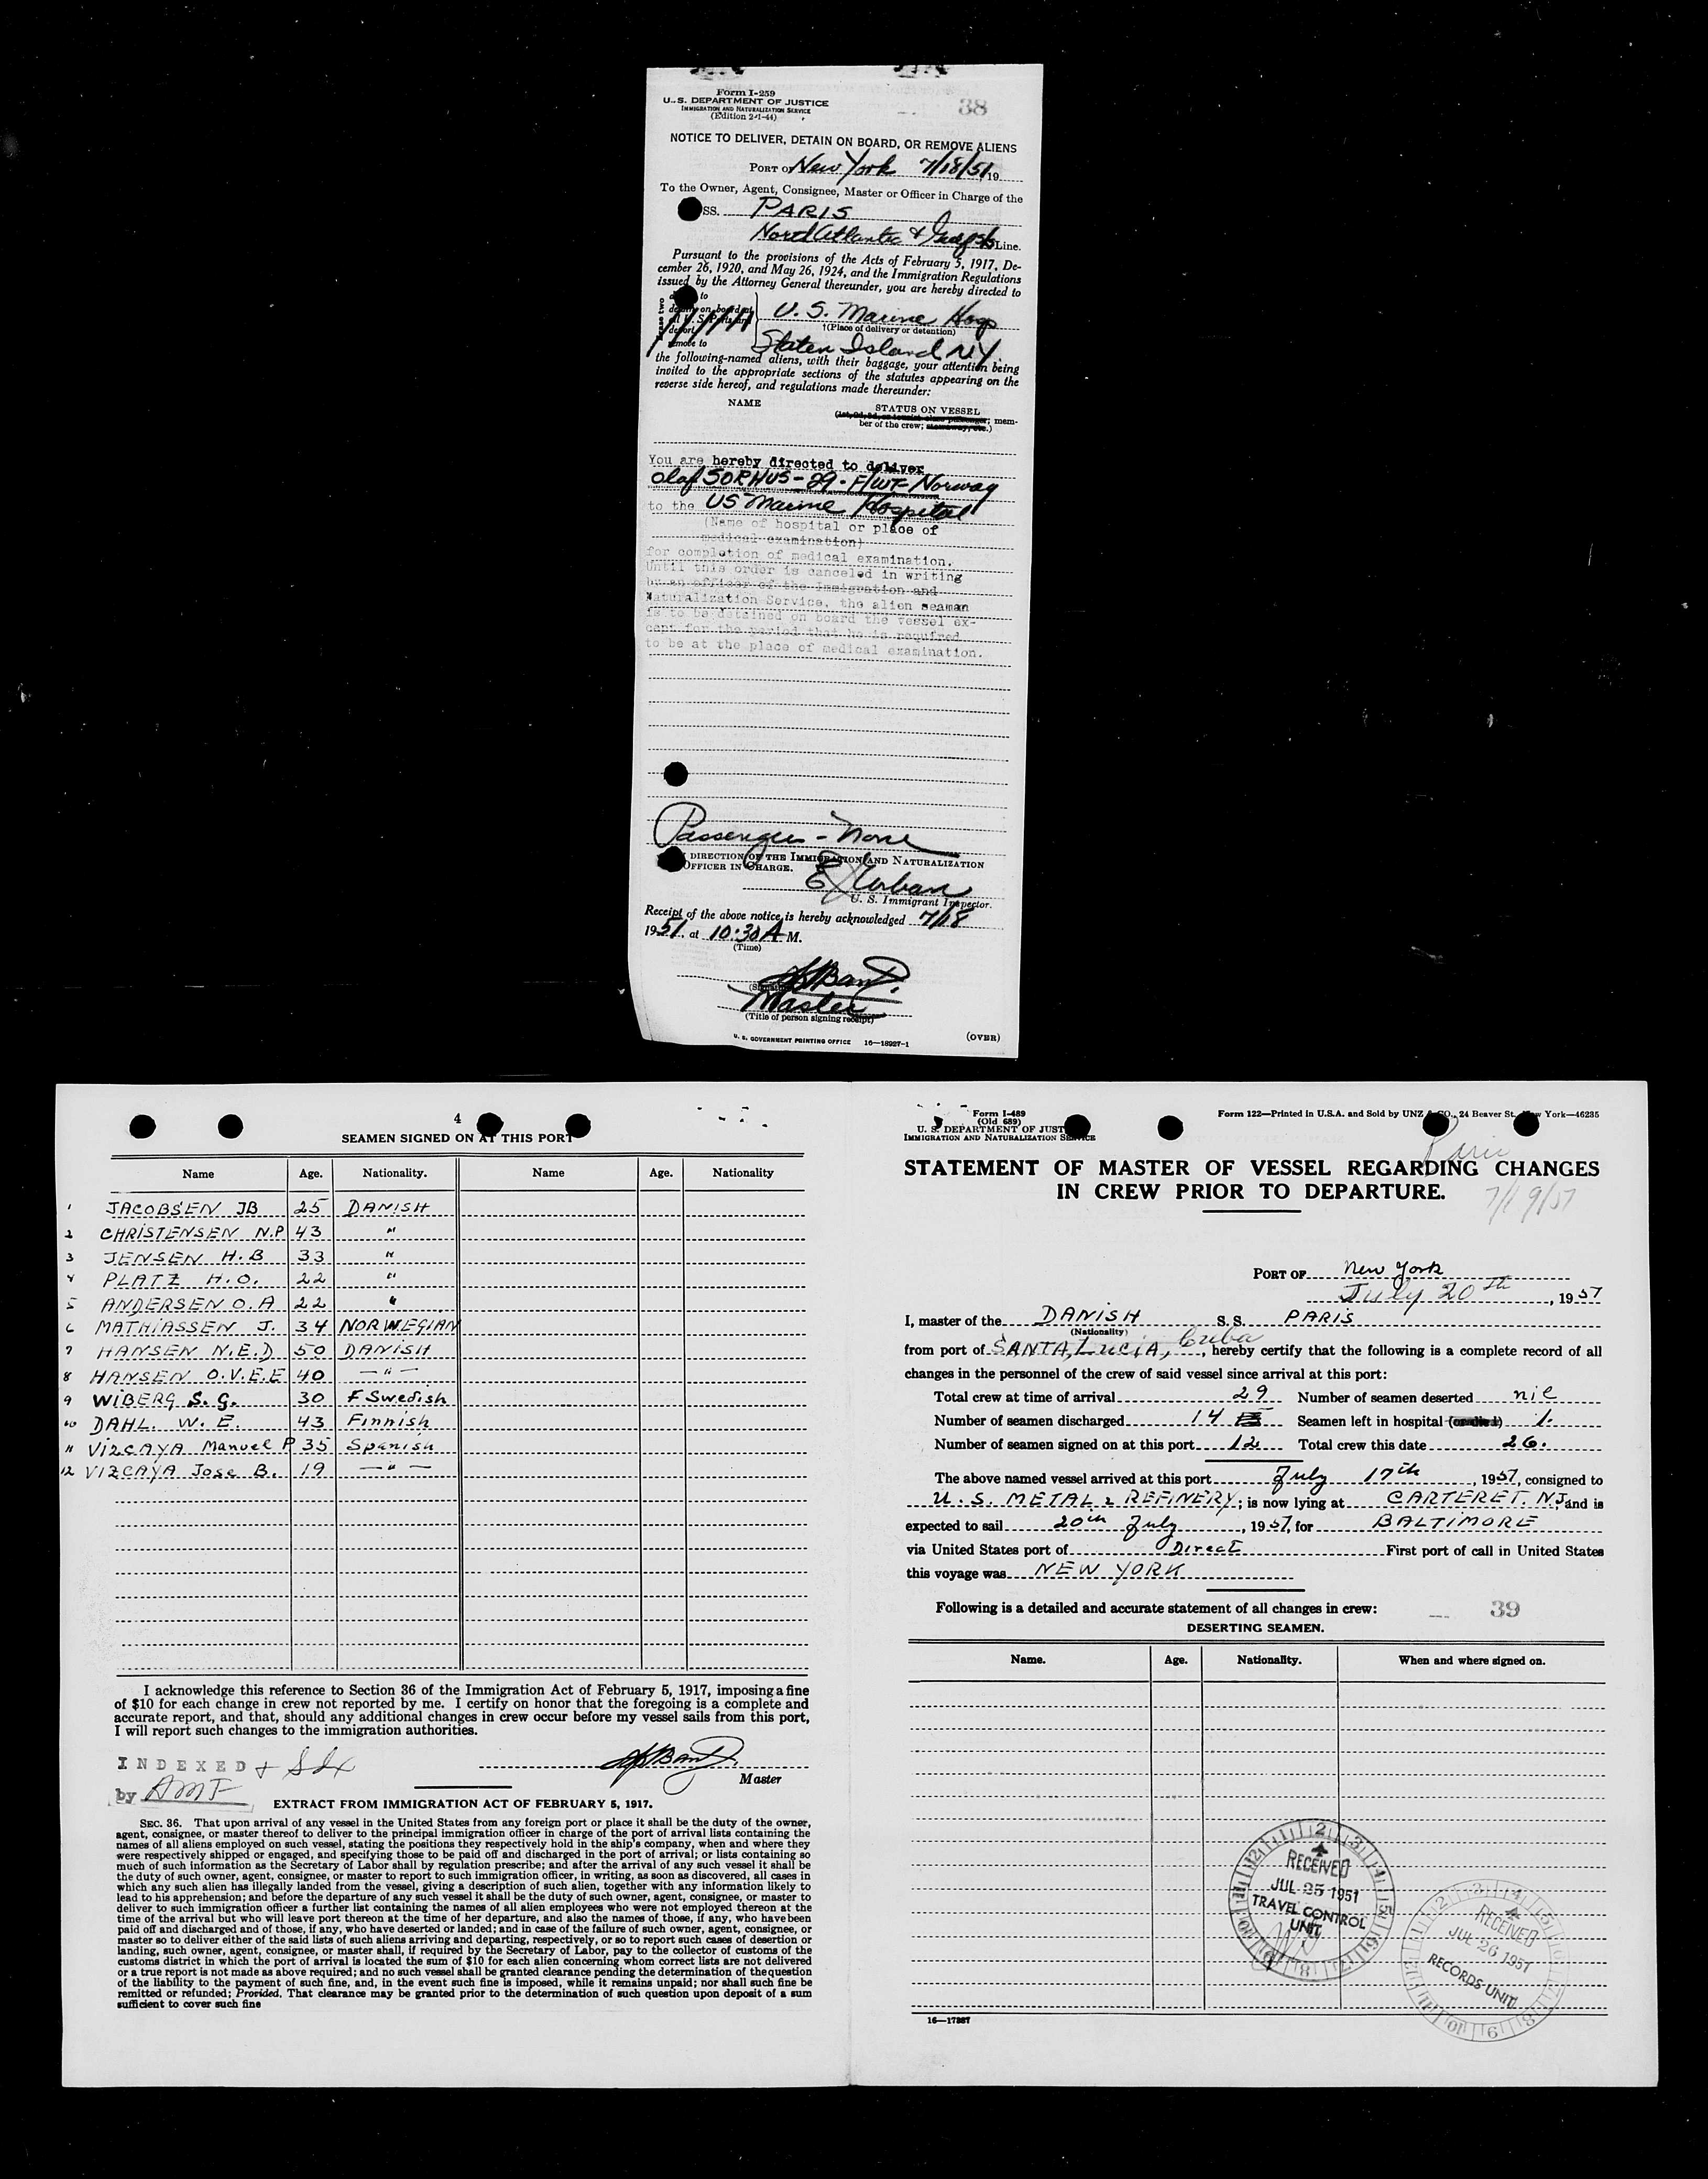 Form I-259
U. S. DEPARTMENT OF JUSTICE
IMMIGRATION AND NATURALIZATION SERVICE
(Edition 2-1-44)
38
NOTICE TO DELIVER, DETAIN ON BOARD, OR REMOVE ALIENS
PORT OF New York 7/18/51, 19
To the Owner, Agent, Consignee, Master or Officer in Charge of the
SS. PARIS
North Atlantic & Gulf SS Line.
Pursuant to the provisions of the Acts of February 5, 1917, De-
cember 26, 1920, and May 26, 1924, and the Immigration Regulations
issued by the Attorney General thereunder, you are hereby directed to
to
detain on board at
deport
remove to
U. S. Marine Hosp
†(Place of delivery or detention)
Staten Island NY.
the following-named aliens, with their baggage, your attention being
invited to the appropriate sections of the statutes appearing on the
reverse side hereof, and regulations made thereunder:
NAME
STATUS ON VESSEL
(1st, 2d, 3d, or tourist class passenger; mem-
ber of the crew; stowaway, etc.)
You are hereby directed to deliver
Olaf SORHUS - 29 - F/WT - Norway
to the US Marine Hospital
(Name of hospital or place of
medical examination)
for completion of medical examination.
Until this order is canceled in writing
by an officer of the Immigration and
Naturalization Service, the alien seaman
is to be detained on board the vessel ex-
cept for the period that he is required
to be at the place of medical examination.
Passengers - None
DIRECTION OF THE IMMIGRATION AND NATURALIZATION
OFFICER IN CHARGE.
Urban
U. S. Immigrant Inspector.
Receipt of the above notice is hereby acknowledged 7/18
1951, at 10:30 A M.
(Time)
(Signature)
Master
(Title of person signing receipt)
U. S. GOVERNMENT PRINTING OFFICE 16—18927-1
(OVER)
4
SEAMEN SIGNED ON AT THIS PORT
Name Age. Nationality. Name Age. Nationality
1 JACOBSEN JB 25 DANISH
2 CHRISTENSEN N.P 43 "
3 JENSEN H.B 33 "
4 PLATZ H.O. 22 "
5 ANDERSEN O.A 22 "
6 MATHIASSEN J. 34 NORWEGIAN
7 HANSEN N.E.D 50 DANISH
8 HANSEN O.V.E.E 40 — " —
9 WIBERG S. G. 30 F Swedish
10 DAHL. W. E. 43 Finnish
11 VIZCAYA Manuel P 35 Spanish
12 VIZCAYA Jose B. 19 — " —
I acknowledge this reference to Section 36 of the Immigration Act of February 5, 1917, imposing a fine
of $10 for each change in crew not reported by me. I certify on honor that the foregoing is a complete and
accurate report, and that, should any additional changes in crew occur before my vessel sails from this port,
I will report such changes to the immigration authorities.
INDEXED
by AMF
Master
EXTRACT FROM IMMIGRATION ACT OF FEBRUARY 5, 1917.
SEC. 36. That upon arrival of any vessel in the United States from any foreign port or place it shall be the duty of the owner,
agent, consignee, or master thereof to deliver to the principal immigration officer in charge of the port of arrival lists containing the
names of all aliens employed on such vessel, stating the positions they respectively hold in the ship's company, when and where they
were respectively shipped or engaged, and specifying those to be paid off and discharged in the port of arrival; or lists containing so
much of such information as the Secretary of Labor shall by regulation prescribe; and after the arrival of any such vessel it shall be
the duty of such owner, agent, consignee, or master to report to such immigration officer, in writing, as soon as discovered, all cases in
which any such alien has illegally landed from the vessel, giving a description of such alien, together with any information likely to
lead to his apprehension; and before the departure of any such vessel it shall be the duty of such owner, agent, consignee, or master to
deliver to such immigration officer a further list containing the names of all alien employees who were not employed thereon at the
time of the arrival but who will leave port thereon at the time of her departure, and also the names of those, if any, who have been
paid off and discharged and of those, if any, who have deserted or landed; and in case of the failure of such owner, agent, consignee, or
master so to deliver either of the said lists of such aliens arriving and departing, respectively, or so to report such cases of desertion or
landing, such owner, agent, consignee, or master shall, if required by the Secretary of Labor, pay to the collector of customs of the
customs district in which the port of arrival is located the sum of $10 for each alien concerning whom correct lists are not delivered
or a true report is not made as above required; and no such vessel shall be granted clearance pending the determination of the question
of the liability to the payment of such fine, and, in the event such fine is imposed, while it remains unpaid; nor shall such fine be
remitted or refunded; Provided, That clearance may be granted prior to the determination of such question upon deposit of a sum
sufficient to cover such fine
Form I-489
(Old 689)
U. S. DEPARTMENT OF JUST
IMMIGRATION AND NATURALIZATION SERVICE
Form 122—Printed in U.S.A. and Sold by UNZ & CO., 24 Beaver St., New York—46235
Paris
7/19/51
STATEMENT OF MASTER OF VESSEL REGARDING CHANGES
IN CREW PRIOR TO DEPARTURE.
PORT OF New York
July 20th, 1951
I, master of the DANISH S. S. PARIS
(Nationality)
from port of SANTA, LUCIA, Cuba, hereby certify that the following is a complete record of all
changes in the personnel of the crew of said vessel since arrival at this port:
Total crew at time of arrival 29 Number of seamen deserted nil
Number of seamen discharged 14 Seamen left in hospital (or died) 1.
Number of seamen signed on at this port 12 Total crew this date 26.
The above named vessel arrived at this port July 17th, 1951, consigned to
U. S. METAL & REFINERY; is now lying at CARTERET. N.J and is
expected to sail 20th July, 1951, for BALTIMORE
via United States port of Direct First port of call in United States
this voyage was NEW YORK
Following is a detailed and accurate statement of all changes in crew:
39
DESERTING SEAMEN.
Name. Age. Nationality. When and where signed on.
RECEIVED
JUL 25 1951
TRAVEL CONTROL
UNIT
RECEIVED
JUL 26 1951
RECORDS UNIT
16—17387